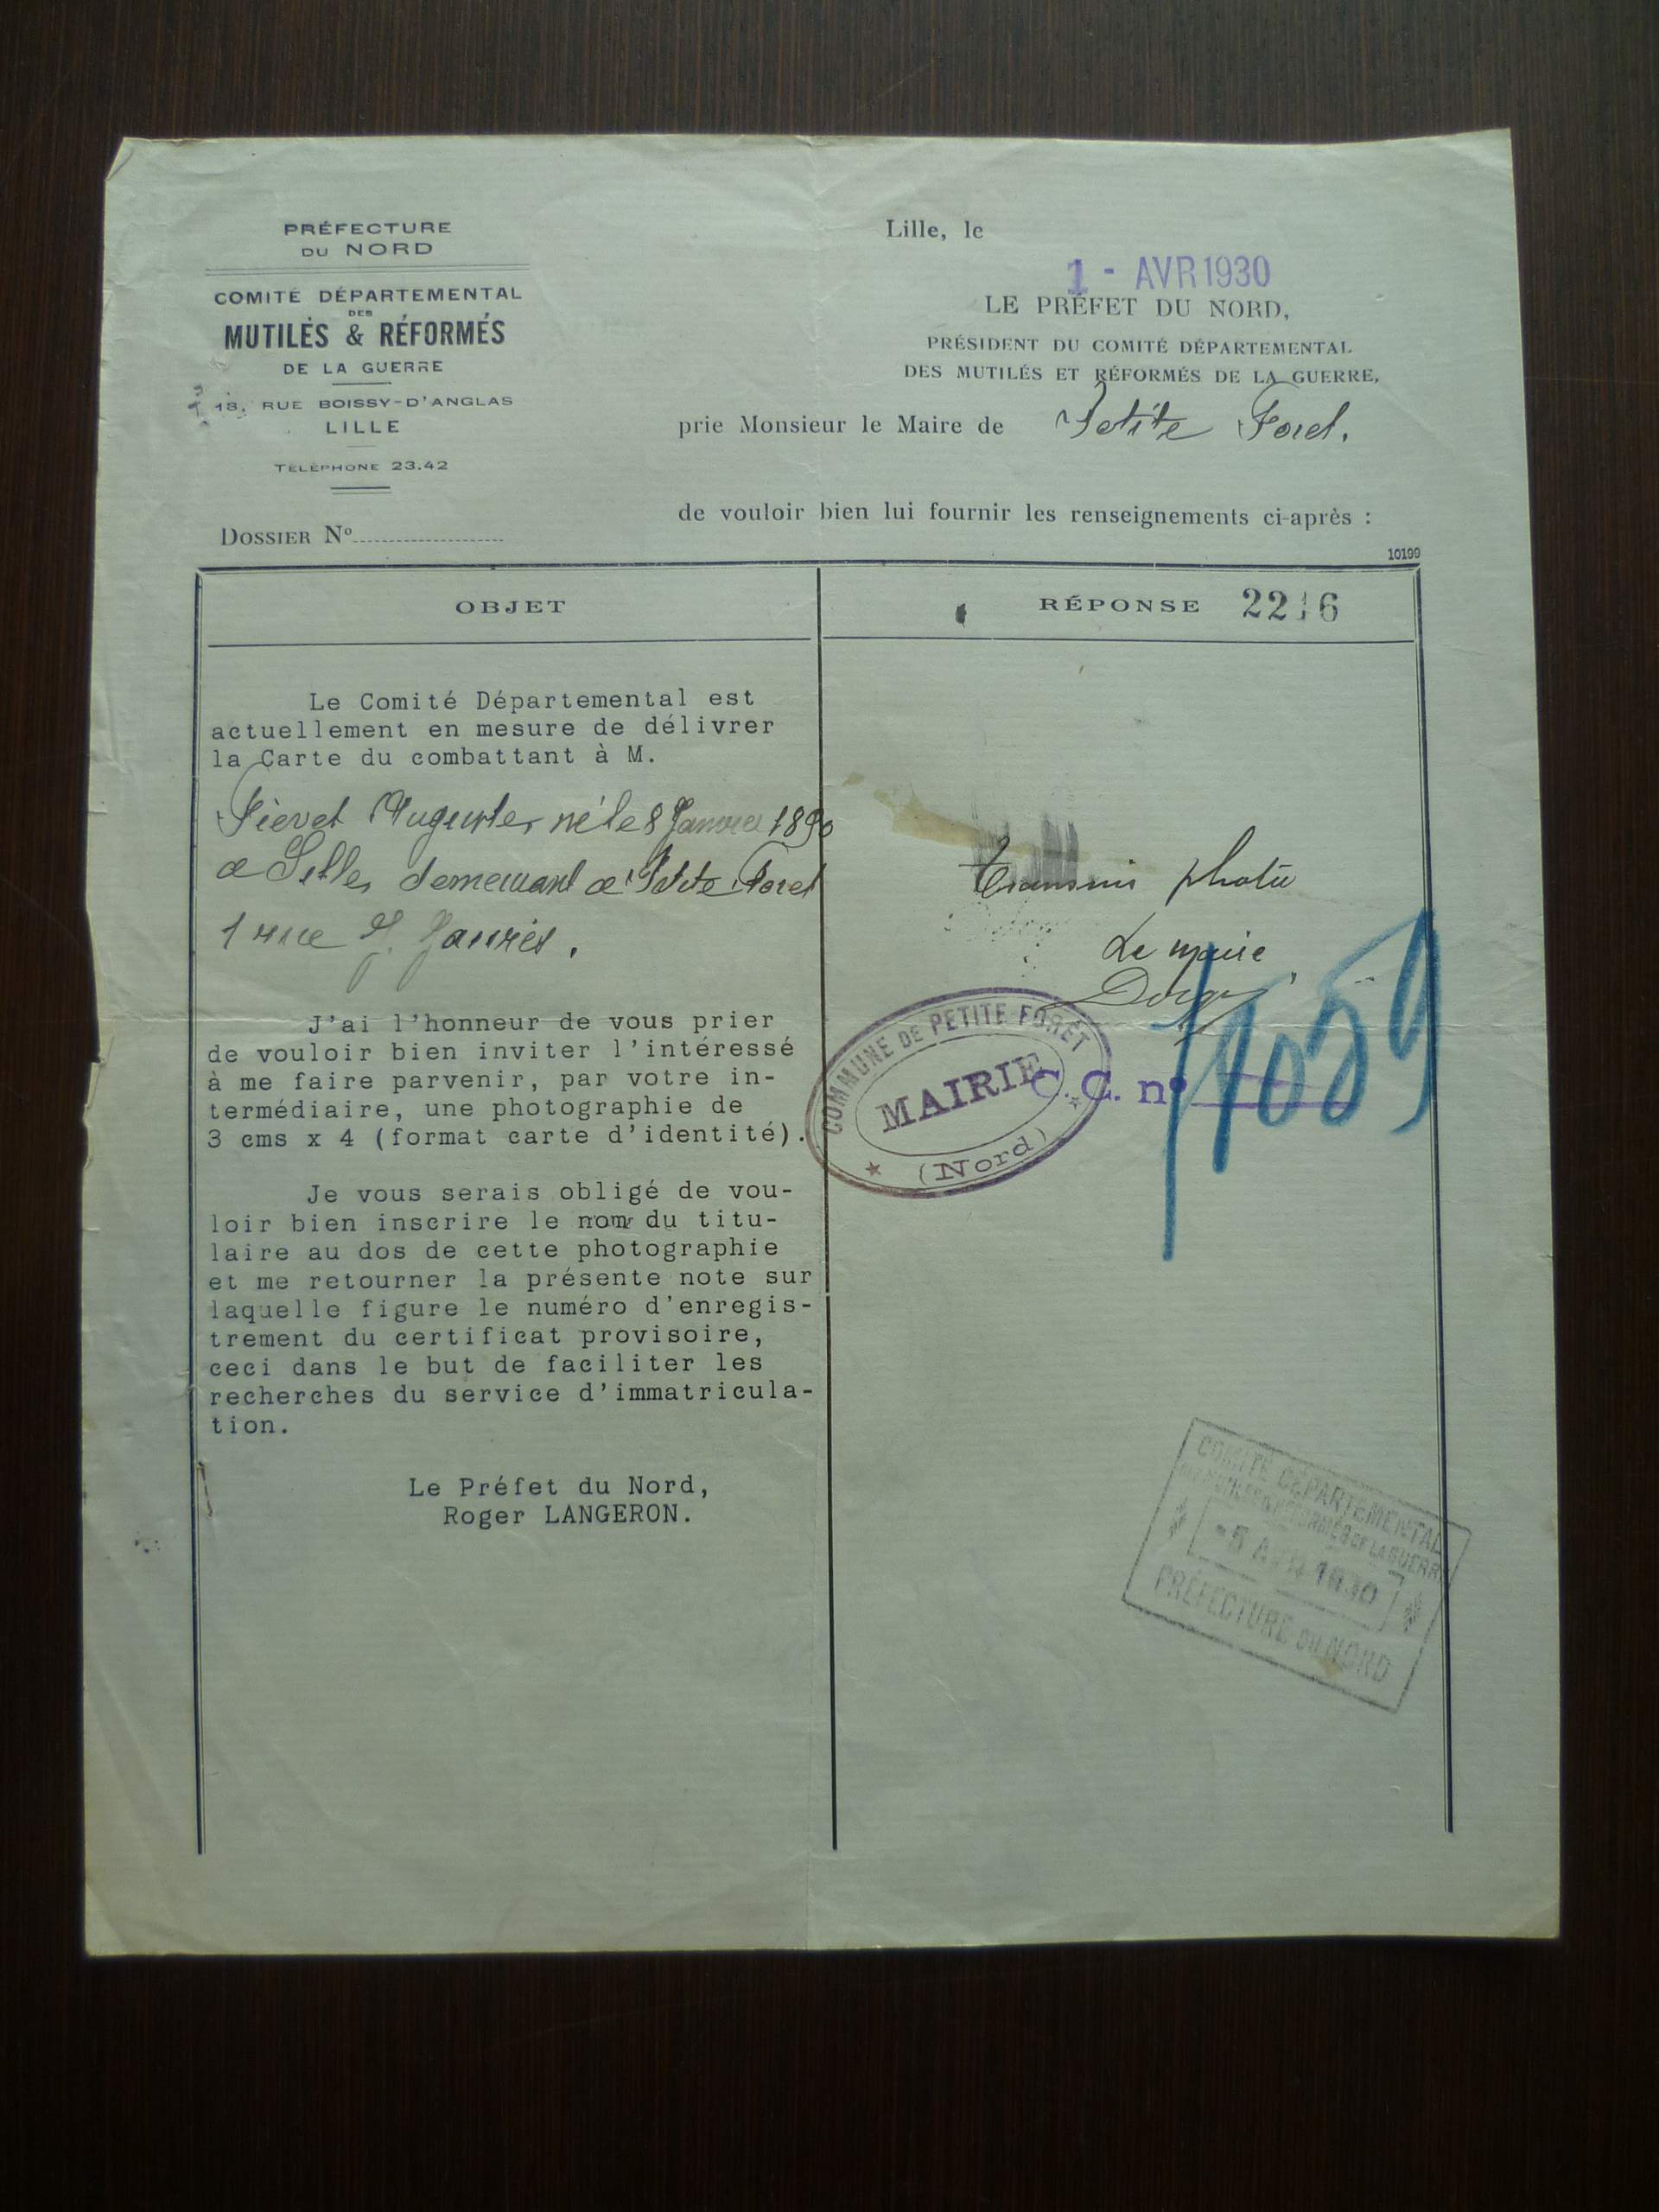 PRÉFECTURE
DU NORD
COMITÉ DÉPARTEMENTAL
DES
MUTILÉS & RÉFORMÉS
DE LA GUERRE
13, RUE BOISSY-D'ANGLAS
LILLE
TÉLÉPHONE 23.42
DOSSIER Nº
Lille, le
1 - AVR 1930
LE PRÉFET DU NORD,
PRÉSIDENT DU COMITÉ DÉPARTEMENTAL
DES MUTILÉS ET RÉFORMÉS DE LA GUERRE,
prie Monsieur le Maire de Petite Foret.
de vouloir bien lui fournir les renseignements ci-après :
10199
OBJET
Le Comité Départemental est
actuellement en mesure de délivrer
la Carte du combattant à M.
Fievet Auguste, né le 8 Janvier 1890
a Lille, demeurant a Petite Foret
1 rue J. Jaurès.
J'ai l'honneur de vous prier
de vouloir bien inviter l'intéressé
à me faire parvenir, par votre in-
termédiaire, une photographie de
3 cms x 4 (format carte d'identité).
Je vous serais obligé de vou-
loir bien inscrire le nom du titu-
laire au dos de cette photographie
et me retourner la présente note sur
laquelle figure le numéro d'enregis-
trement du certificat provisoire,
ceci dans le but de faciliter les
recherches du service d'immatricula-
tion.
Le Préfet du Nord,
Roger LANGERON.
RÉPONSE 2216
Transmis photo
Le maire
COMMUNE DE PETITE FORÊT
MAIRIE
(Nord)
C. C. nº
COMITÉ DÉPARTEMENTAL
DES MUTILÉS & RÉFORMÉS DE LA GUERRE
-5 AVR 1930
PRÉFECTURE DU NORD